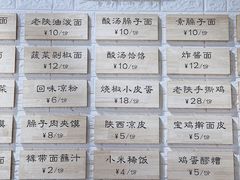 老陕油泼面
¥10/份
酸汤臊子面
¥10/份
素臊子面
¥10/份
蔬菜剁椒面
¥12/份
酸汤饸饹
¥10/份
炸酱面
¥12/份
回味凉粉
¥6/份
烧椒小皮蛋
¥18/份
老陕手撕鸡
¥28/份
臊子肉夹馍
¥8/份
陕西凉皮
¥5/份
宝鸡擀面皮
¥5/份
裤带面蘸汁
¥2/份
小米稀饭
¥4/份
鸡蛋醪糟
¥5/份